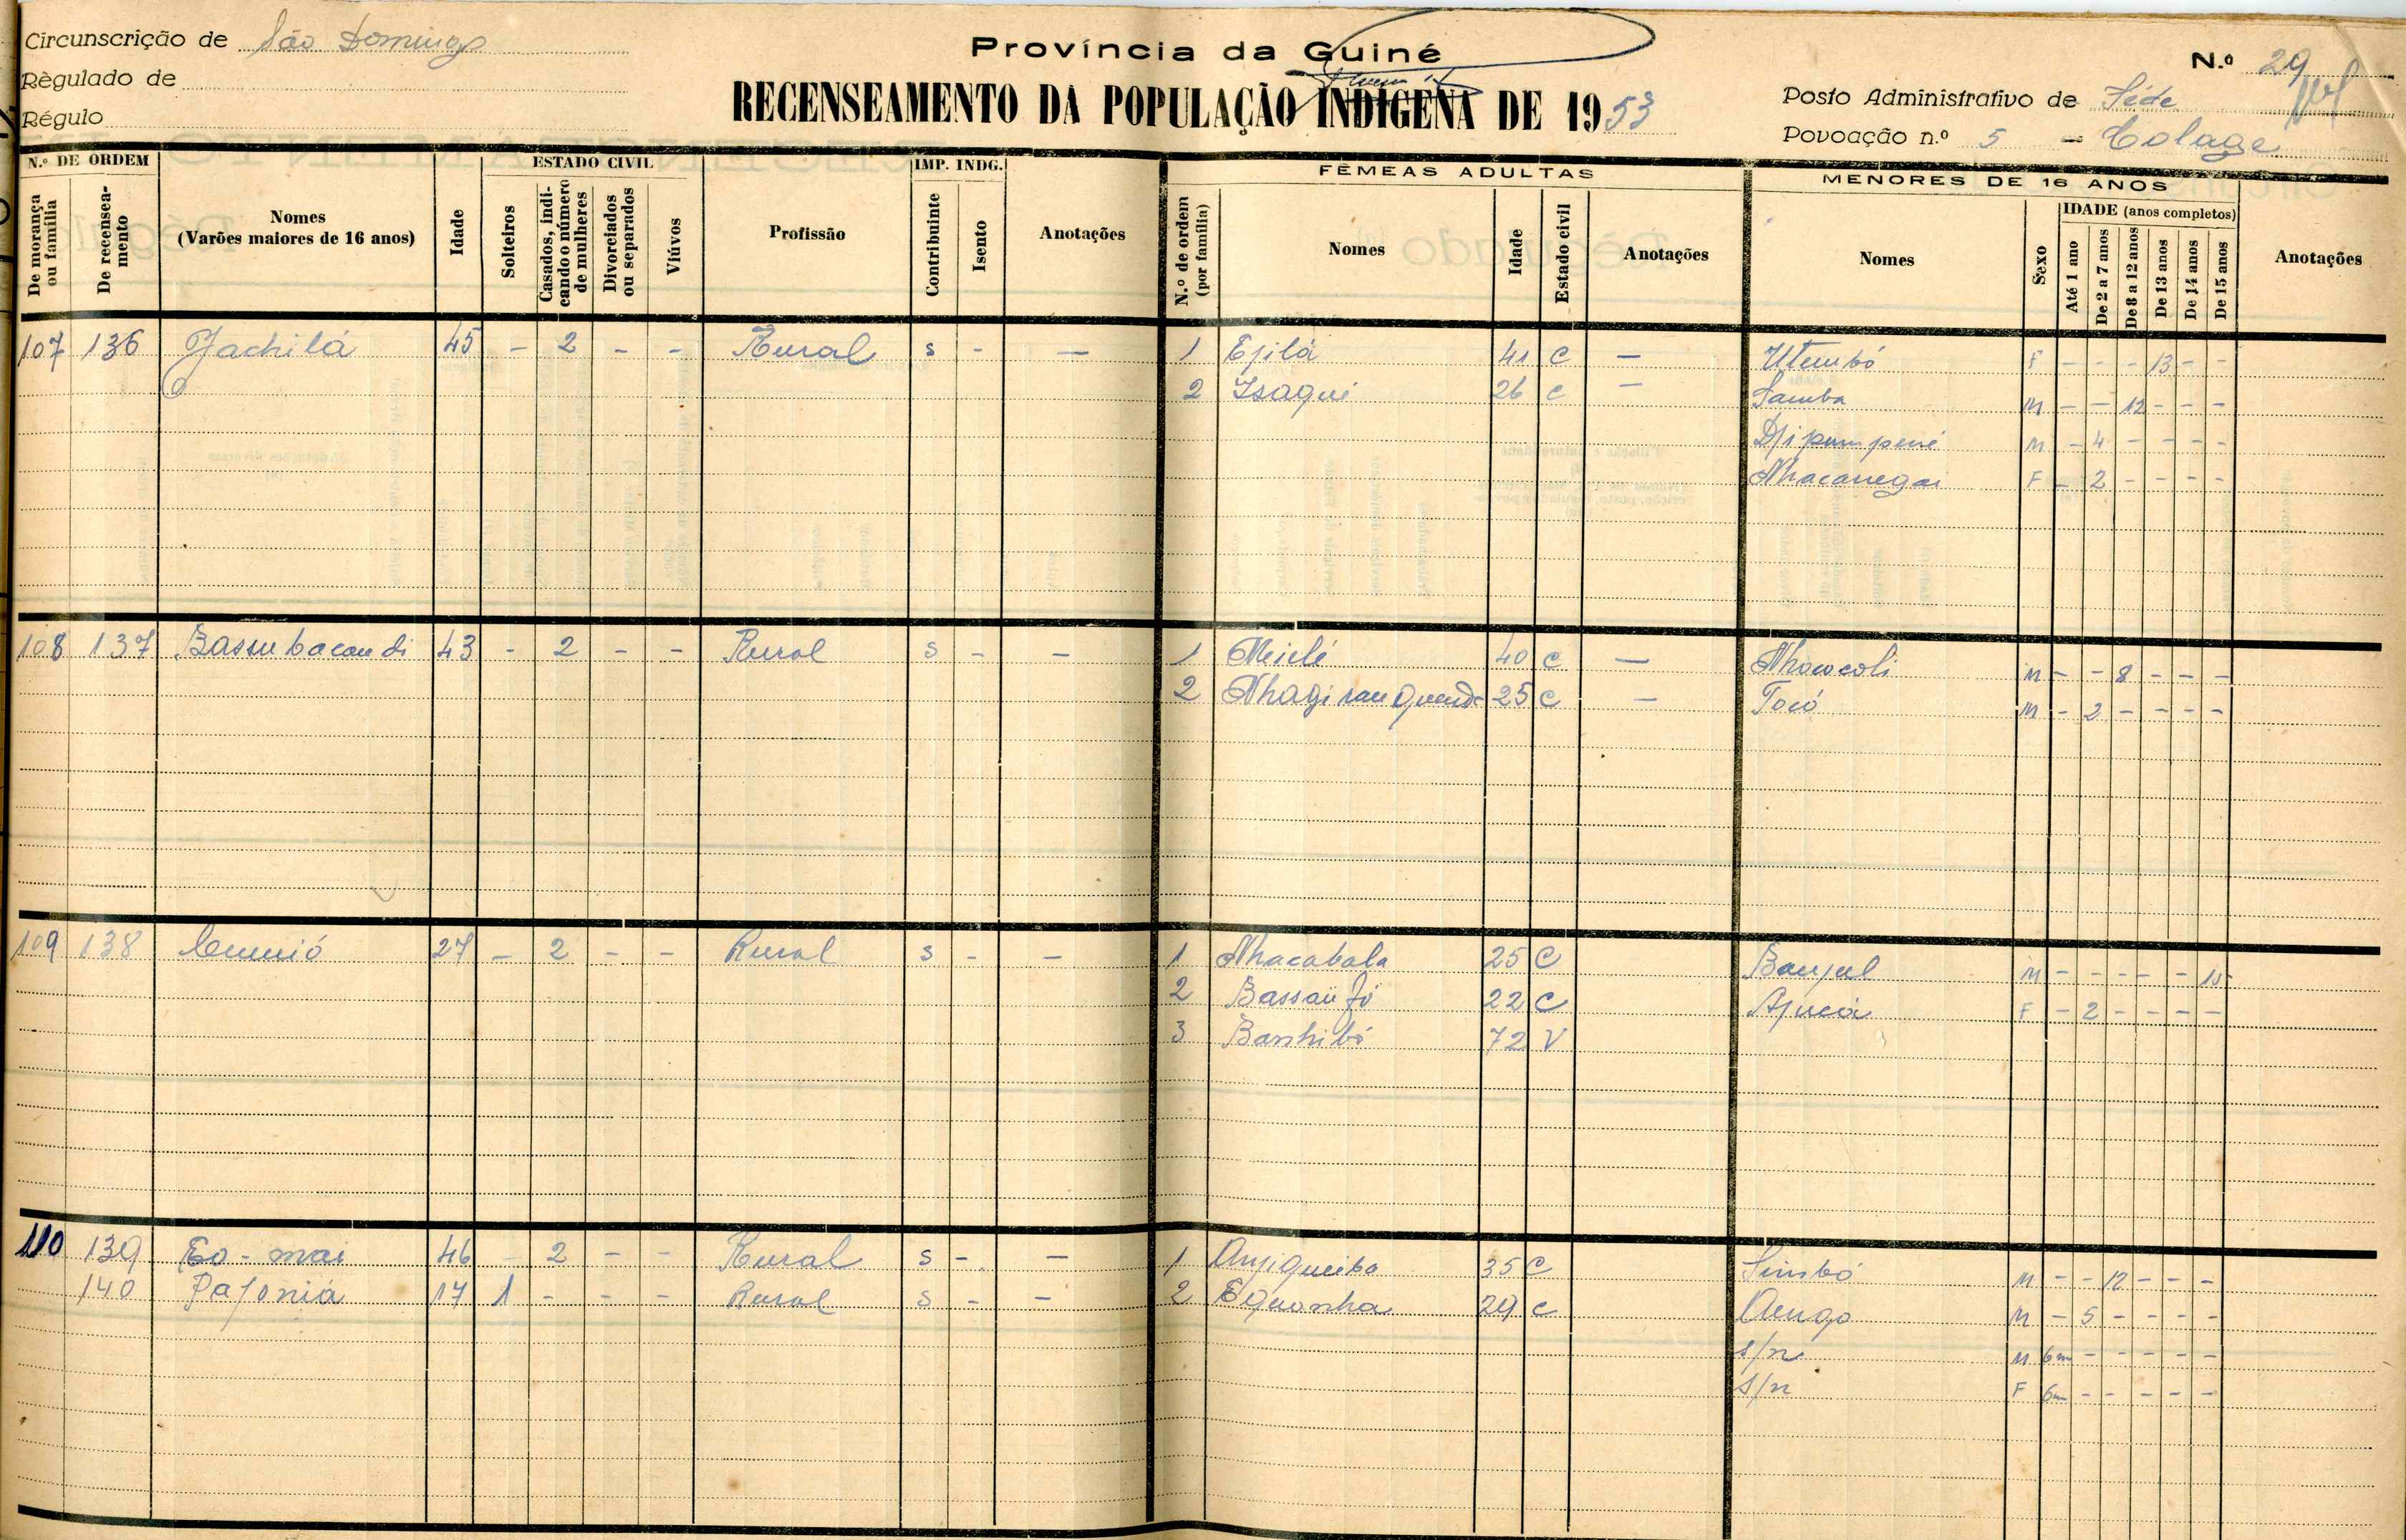 Circunscrição de São Domingos
Règulado de
Régulo
Província da Guiné
RECENSEAMENTO DA POPULAÇÃO INDÍGENA DE 1953
N.º 29
Posto Administrativo de Séde
Povoação n.º 5 - Colage
N.º DE ORDEM
De morança ou família
De recenseamento
Nomes
(Varões maiores de 16 anos)
Idade
ESTADO CIVIL
Solteiros
Casados, indicando o número de mulheres
Divorciados ou separados
Viúvos
Profissão
IMP. INDG.
Contribuinte
Isento
Anotações
FÊMEAS ADULTAS
N.º de ordem (por família)
Nomes
Idade
Estado civil
Anotações
MENORES DE 16 ANOS
Nomes
Sexo
IDADE (anos completos)
Até 1 ano
De 2 a 7 anos
De 8 a 12 anos
De 13 anos
De 14 anos
De 15 anos
Anotações
107 136 Jachilá 45 - 2 - - Rural s - - 1 Ejilá 41 C - Utembó F - - - 13 - -
2 Isaqui 26 C - Samba M - - 12 - - -
Djipumpené M - 4 - - - -
Nhacanegai F - 2 - - - -
108 137 Bassubacondi 43 - 2 - - Rural s - - 1 40 C - M - - 8 - - -
2 25 C - Tocó M - 2 - - - -
109 138 27 - 2 - - Rural s - - 1 Nhacabala 25 C Banjul M - - - - - 15
2 22 C F - 2 - - - -
3 72 V
110 139 Eo-mai 46 - 2 - - Rural s - - 1 Anjiqueiba 35 C Simbó M - - 12 - - -
140 Pajoniá 17 1 - - - Rural s - - 2 Equonha 29 C M - 5 - - - -
s/n M 6m - - - - -
s/n F 6m - - - - -